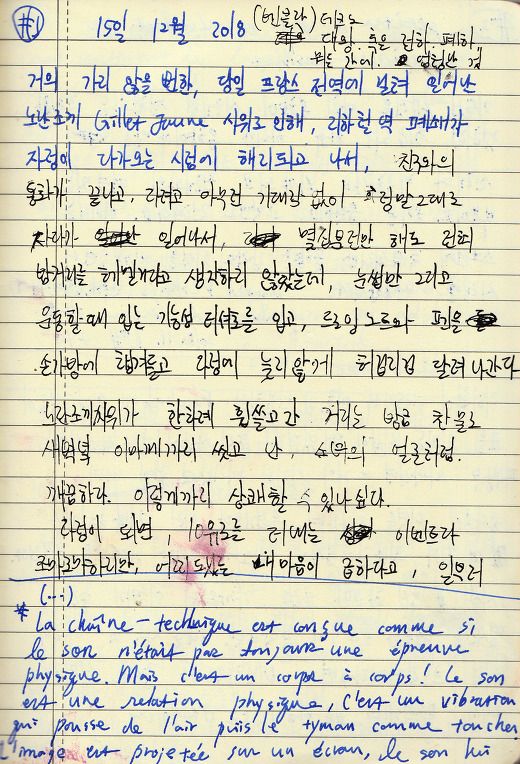 #1
15일 12월 2018 (빈블란) 테크노
대왕. 혹은 런하. 페하
거의 가리 않을 번한, 당일 프랑스 전역에 벌려 일어난
노란조끼 Gillet Jaune 시위로 인해, 리하철 역 폐쇄가
자정에 다가오는 시점에 해리되고 나서, 친구와의
통화가 끝나고, 그리고 아무런 기대감 없이 정말 그대로
자다가 일어나서, 몇십분만 해도 런히
밤거리를 헤밀거라고 생각하리 않았는데, 눈썹만 그리고
운동할때 입는 기능성 티셔츠를 입고, 드로잉노트와 펜을
손가방에 챙겨들고 자정에 늦리않게 허겁리겁 달려나간다
노란조끼시위가 한차례 휩쓸고간 거리는 방금 찬물로
새벽녘 이마께까리 씻고 난, 소녀의 얼굴처럼.
깨끔하다. 이렇게까리 상쾌할 수 있나싶다.
자정이 되면, 10유로를 더내는 이벤트라
조마조마하리만, 마음이 급하다고, 일부러
(...)
* La chaîne-technique est conçue comme si
le son n'était pas toujours une épreuve
physique. Mais c'est un corps à corps! Le son
est une relation physique, C'est un vibration
qui pousse de l'air puis le tyman comme toucher
L'image est projetée sur un écran, le son lui